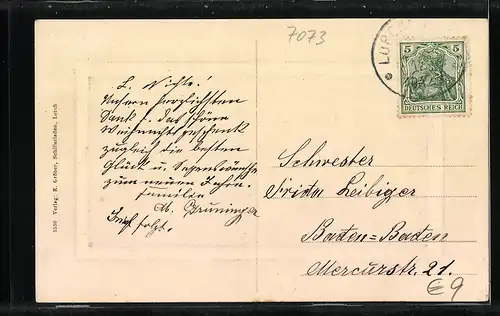 7073
LORC
5 5
DEUTSCHES REICH
L. Nichte!
Unsern herzlichsten
Dank f. das schöne
Weihnachtsgeschenk
zugleich die besten
Glück u. Segenswünsche
zum neuen Jahre.
Familie
A. Gruninger
Brief folgt.
Schwester
Frida Leibiger
Baden=Baden
Mercurstr. 21.
€9
Verlag: E. Gerbner, Schillerladen, Lorch